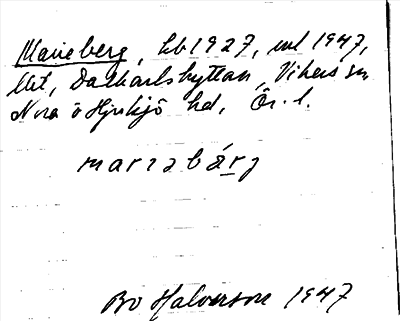 Marieberg, hb 1927, uul 1947,
litt, Dalkarlshyttan, Vikers sn
Nora o Hjulsjö hd, Ör. l.
marɩabárj
Bo Halvarson 1947